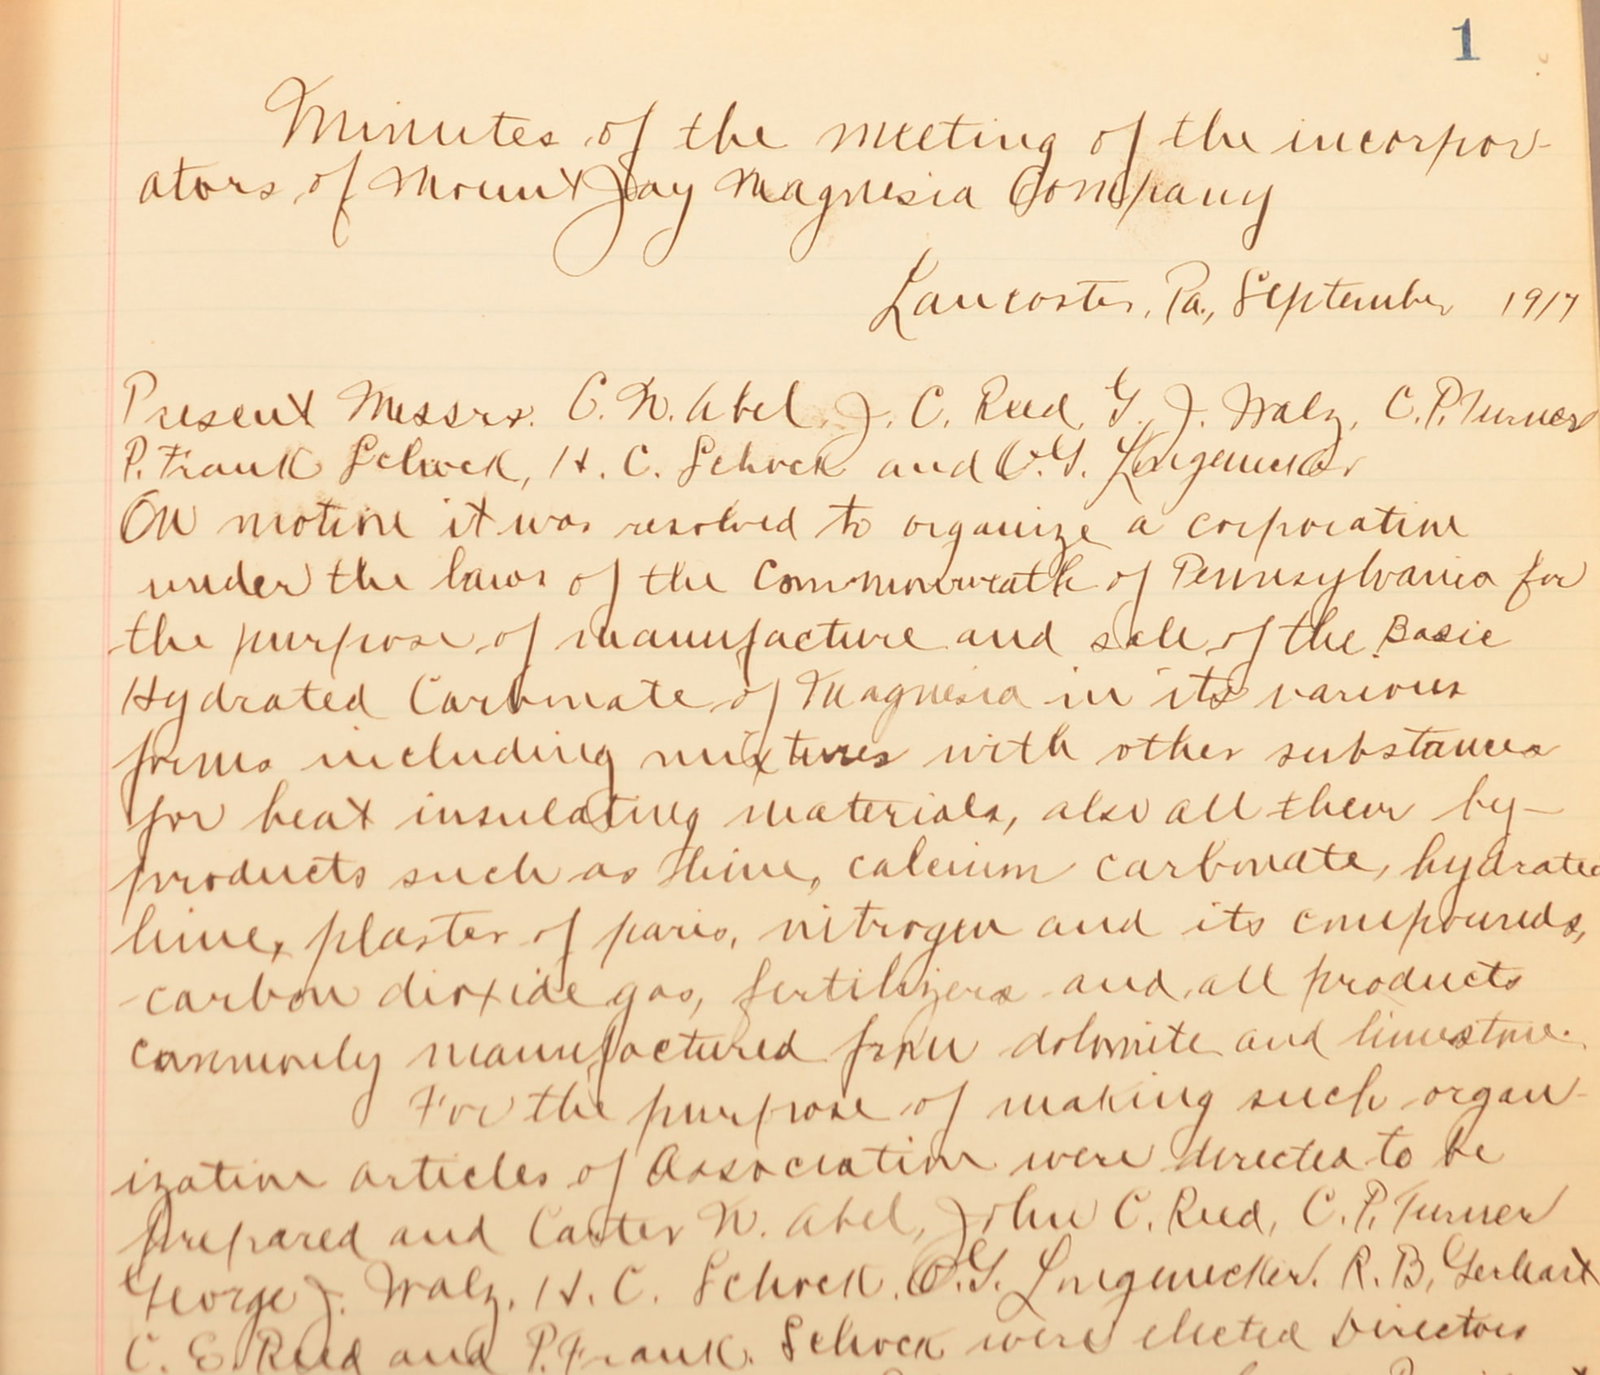 1
Minutes of the meeting of the incorpor-
ators of Mount Joy Magnesia Company
Lancaster, Pa., September 1917
Present Messrs. C. N. Abel, J. C. Reed, G. J. Walz, C. P. Turner
P. Frank Schock, H. C. Schock and O. G. Longenecker
On motion it was resolved to organize a corporation
under the laws of the Commonwealth of Pennsylvania for
the purpose of manufacture and sale of the Basic
Hydrated Carbonate of Magnesia in its various
forms including mixtures with other substances
for heat insulating materials, also all their by-
products such as lime, calcium carbonate, hydrated
lime, plaster of paris, nitrogen and its compounds,
carbon dioxide gas, fertilizers and all products
commonly manufactured from dolomite and limestone.
For the purpose of making such organ-
ization articles of Association were directed to be
prepared and Carter N. Abel, John C. Reed, C. P. Turner
George J. Walz, H. C. Schock, O. G. Longenecker. R. B. Gerhart
C. E. Reed and P. Frank Schock were elected Directors